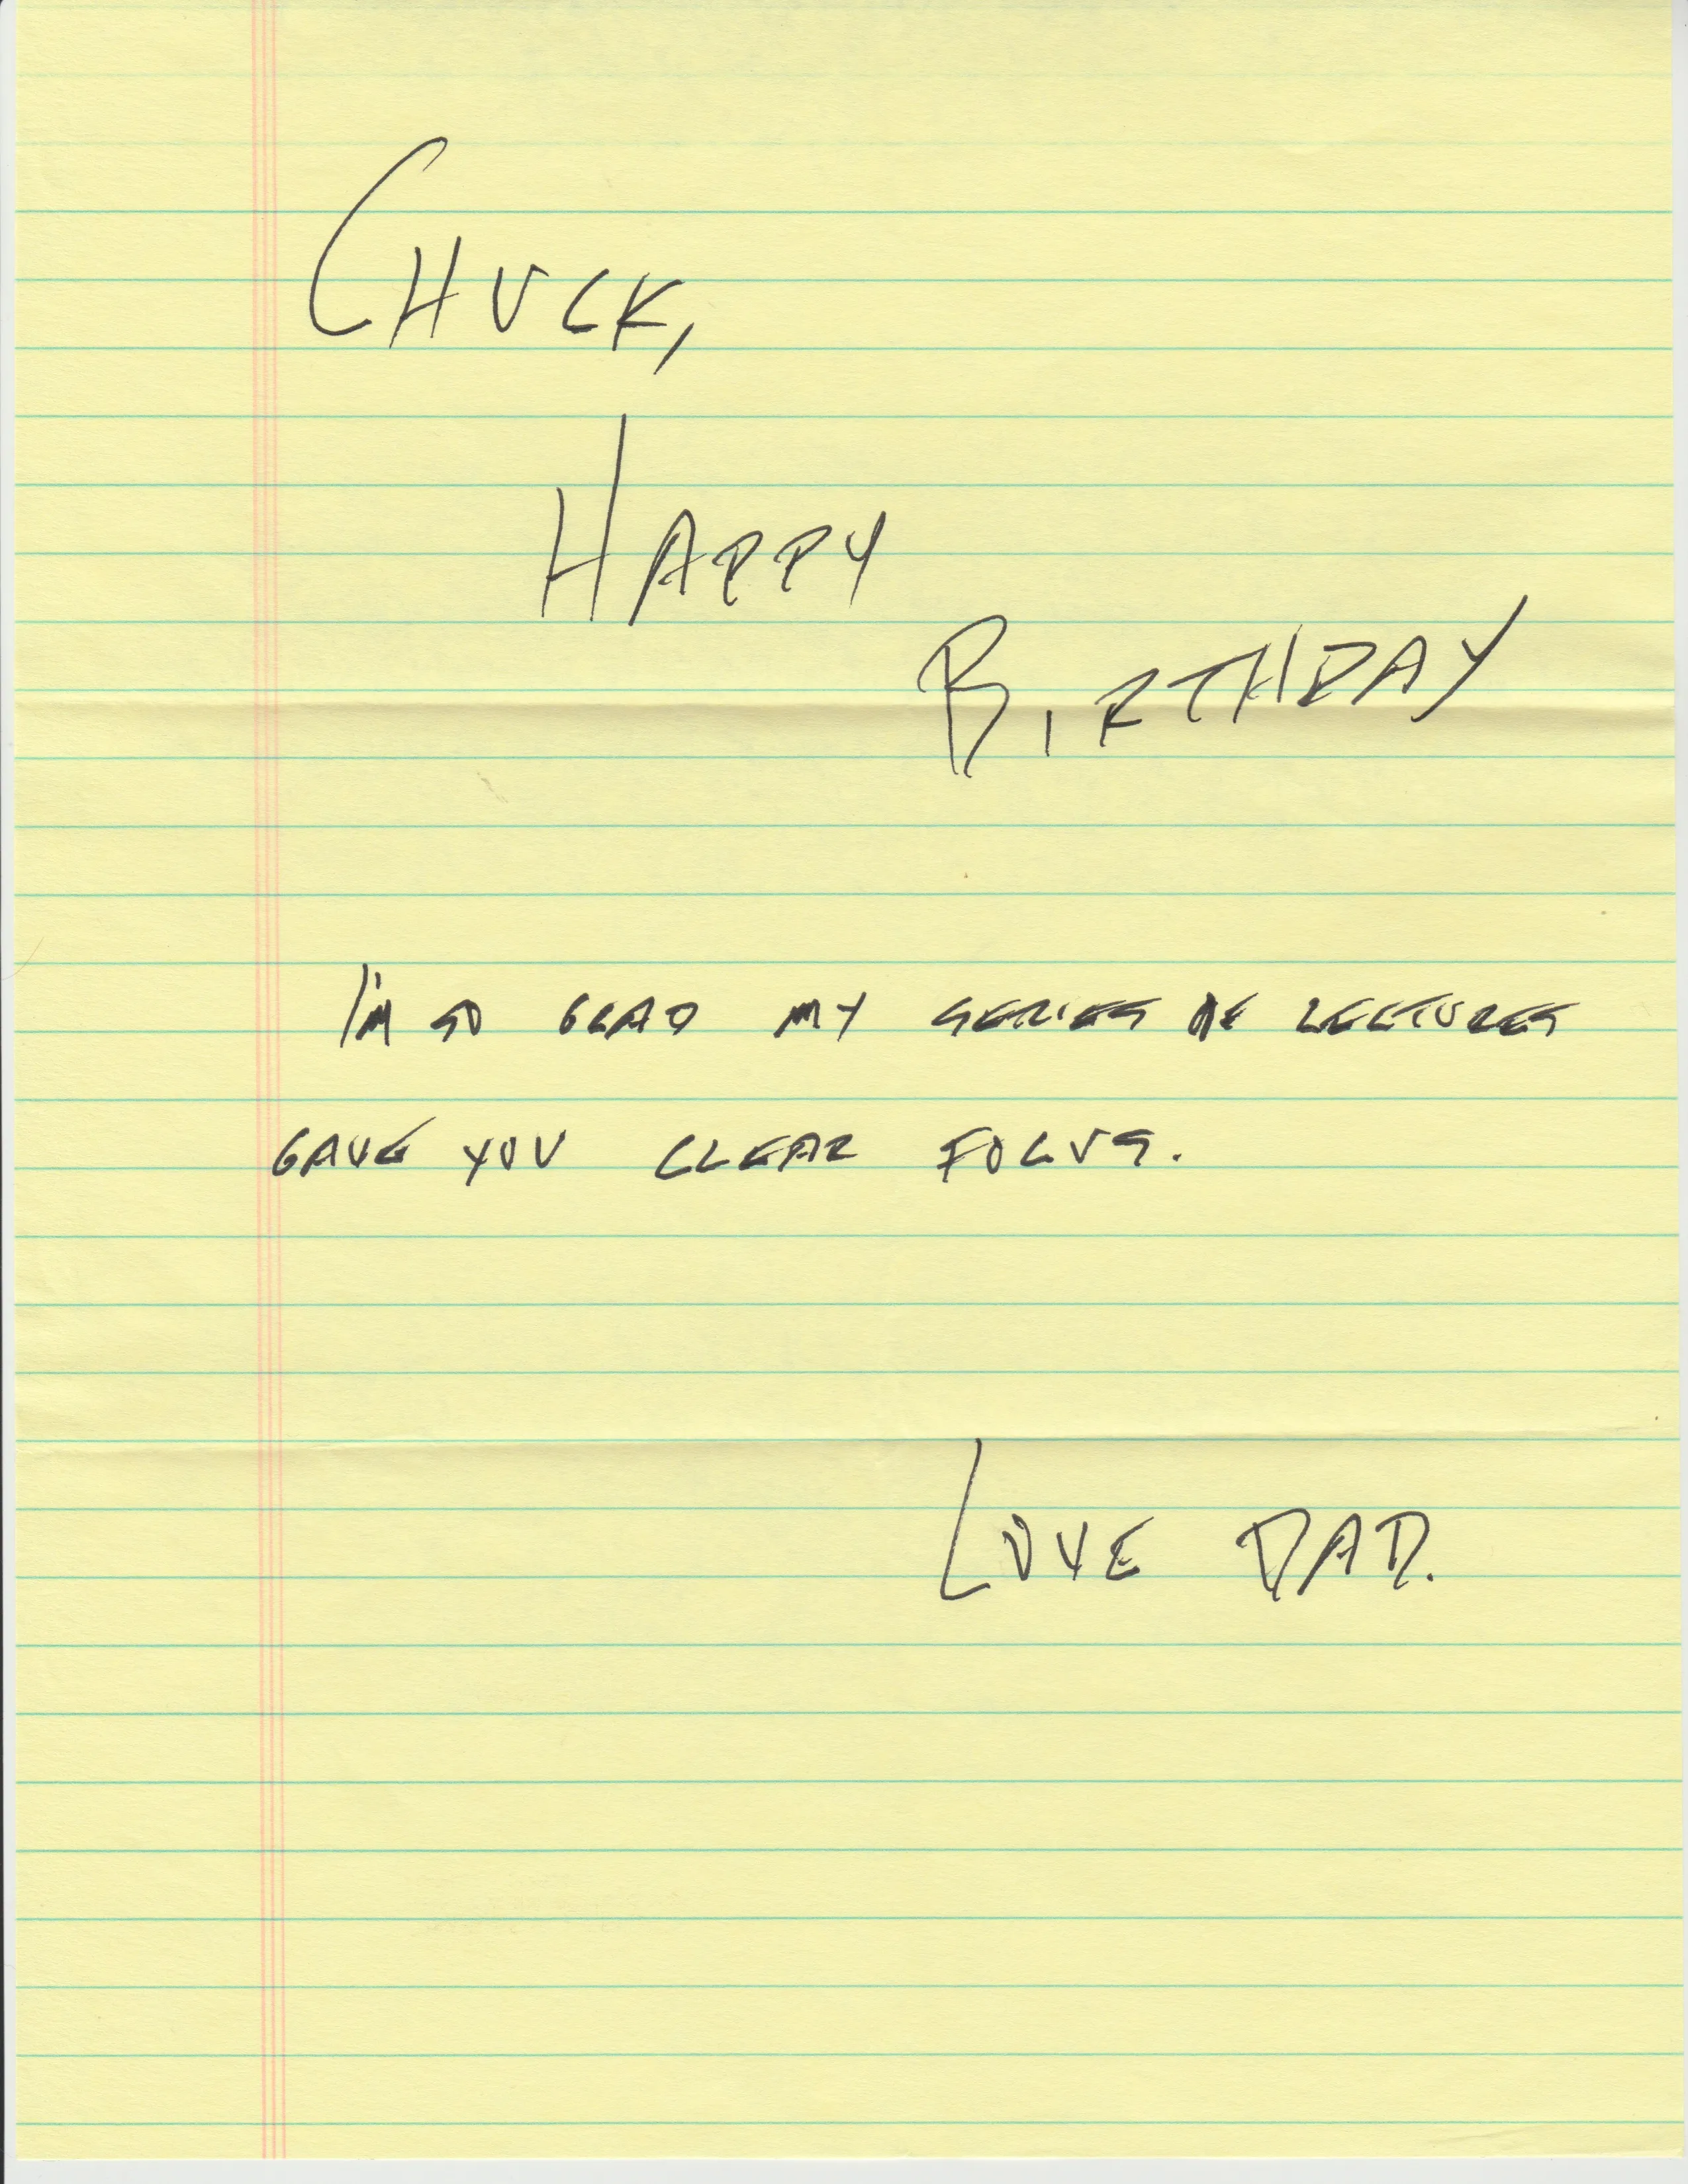 CHUCK,
HAPPY
BIRTHDAY
I'M SO GLAD MY SERIES OF LECTURES
GAVE YOU CLEAR FOCUS.
LOVE DAD.